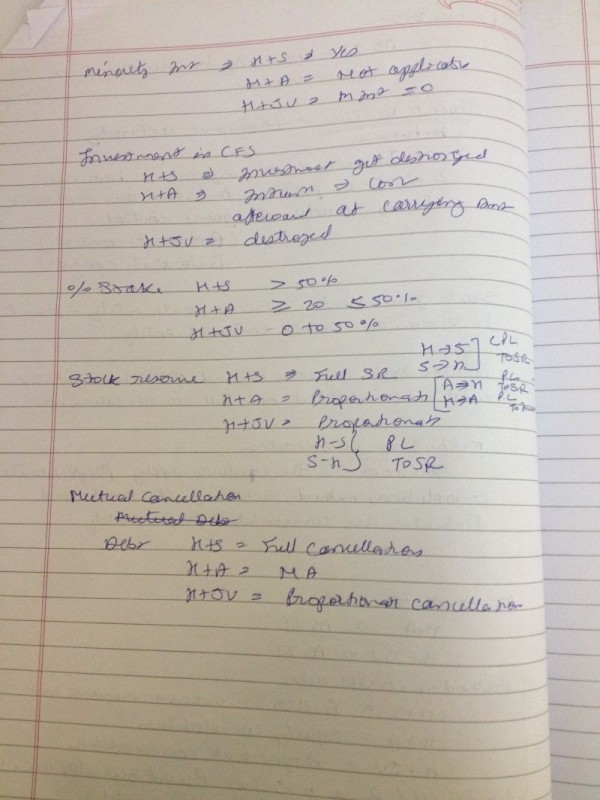 Minority Int ⇒ H+S ⇒ Yes
H+A = Not applicable
H+JV = M Int = 0
Investment in CFS
H+S ⇒ Investment get destroyed
H+A ⇒ ⇒
afterward at carrying Amt
H+JV = destroyed
% Stake H+S > 50%
H+A ≥ 20 ≤ 50%
H+JV 0 to 50%
H→S ] CPL
S→H ] TO SR
Stock reserve H+S ⇒ Full SR
H+A = Proportionate [ A⇒H PL TO SR
H⇒A PL
H+JV = Proportionate
H-S } PL
S-H } TO SR
Mutual Cancellation
Mutual Debt
Debt H+S = Full Cancellation
H+A = NA
H+JV = Proportionate cancellation